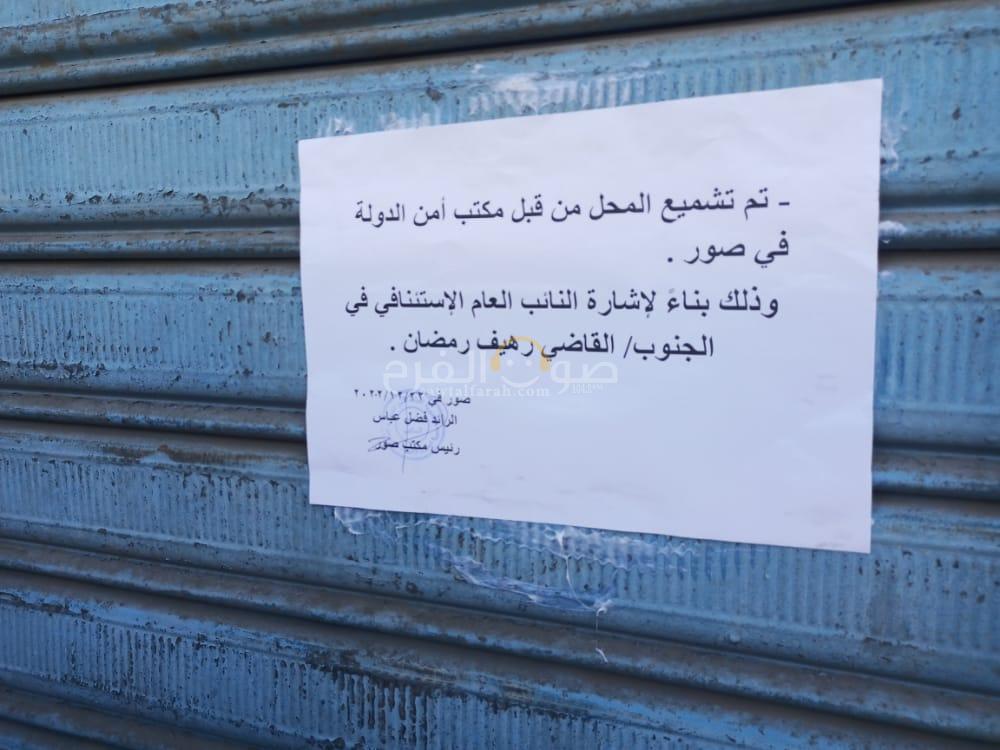 - تم تشميع المحل من قبل مكتب أمن الدولة
في صور .
وذلك بناءً لإشارة النائب العام الإستئنافي في
الجنوب/ القاضي رهيف رمضان .
صوت الفرح
sawtalfarah.com
صور في ٢٠٢٢/١٢/٢٣
الرائد فضل عباس
رئيس مكتب صور